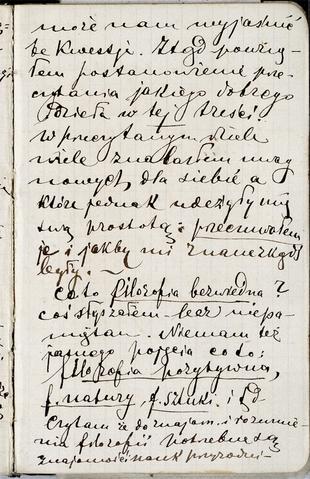 może nam wyjaśnić
te kwestje. Ztąd powzią-
łem postanowienie prze-
czytania jakiego dobrego
dzieła w tej treści.
w przeczytanym dziele
wiele znalazłem uwag
nowych, dla siebie a
które jednak uderzyły mię
swą prostotą, przeczuwałem
je i jakby mi znane kędyś
były. —
Co to filozofia bezwiedna?
coś słyszałem lecz niepa-
miętam. Niemam też
jasnego pojęcia co to:
filozofia pozytywna,
f. natury, f. sztuki. i t.d.
Czytam że do znajom. i rozumie-
nia filozofii potrzebne są
znajomości nauk przyrodni-